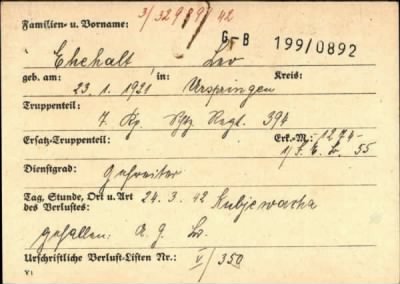 3/329899 42
Familien- u. Vorname:
G-B 199/0892
Ehehalt Leo
geb. am: in: Kreis:
23. 1. 1921 Urspringen
Truppenteil:
7. Kp. Sch. Regt. 394
Ersatz-Truppenteil: Erk.-M.: -127-
1/ 55
Dienstgrad:
Gefreiter
Tag, Stunde, Ort u. Art 24. 3. 42
des Verlustes:
gefallen.
Urschriftliche Verlust-Listen Nr.: V/350
V 1